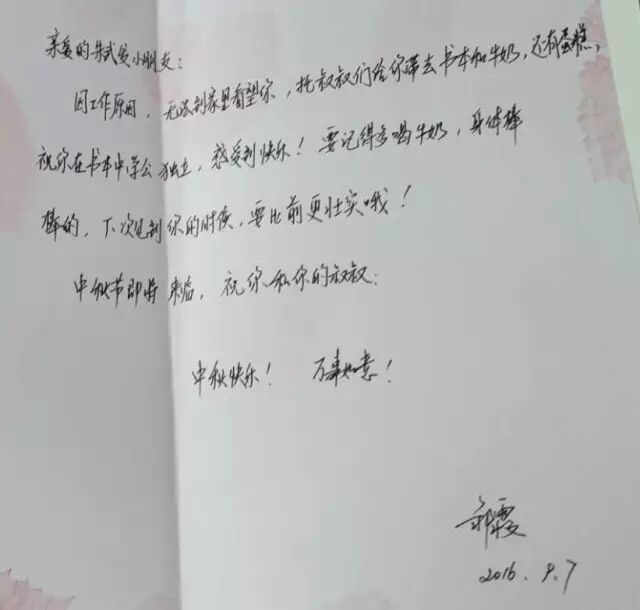 亲爱的朱武发小朋友:
因工作原因,无法到家里看望你,托叔叔们给你带去书本和牛奶,还有蛋糕,
祝你在书本中学会独立,感受到快乐!要记得多喝牛奶,身体棒
棒的,下次见到你的时候,要比前更壮实哦!
中秋节即将来临,祝你和你的叔叔:
中秋快乐! 万事如意!
霞
2016.9.7